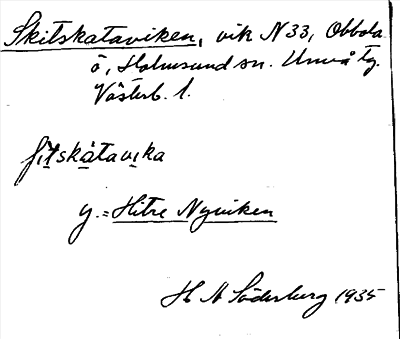 Skitskataviken, vik N 33, Obbola
ö, Holmsund sn. Umeå tg.
Västerb. l.
ʃìtskàtavika
y. = Hitre Nyviken
H A Söderberg 1935